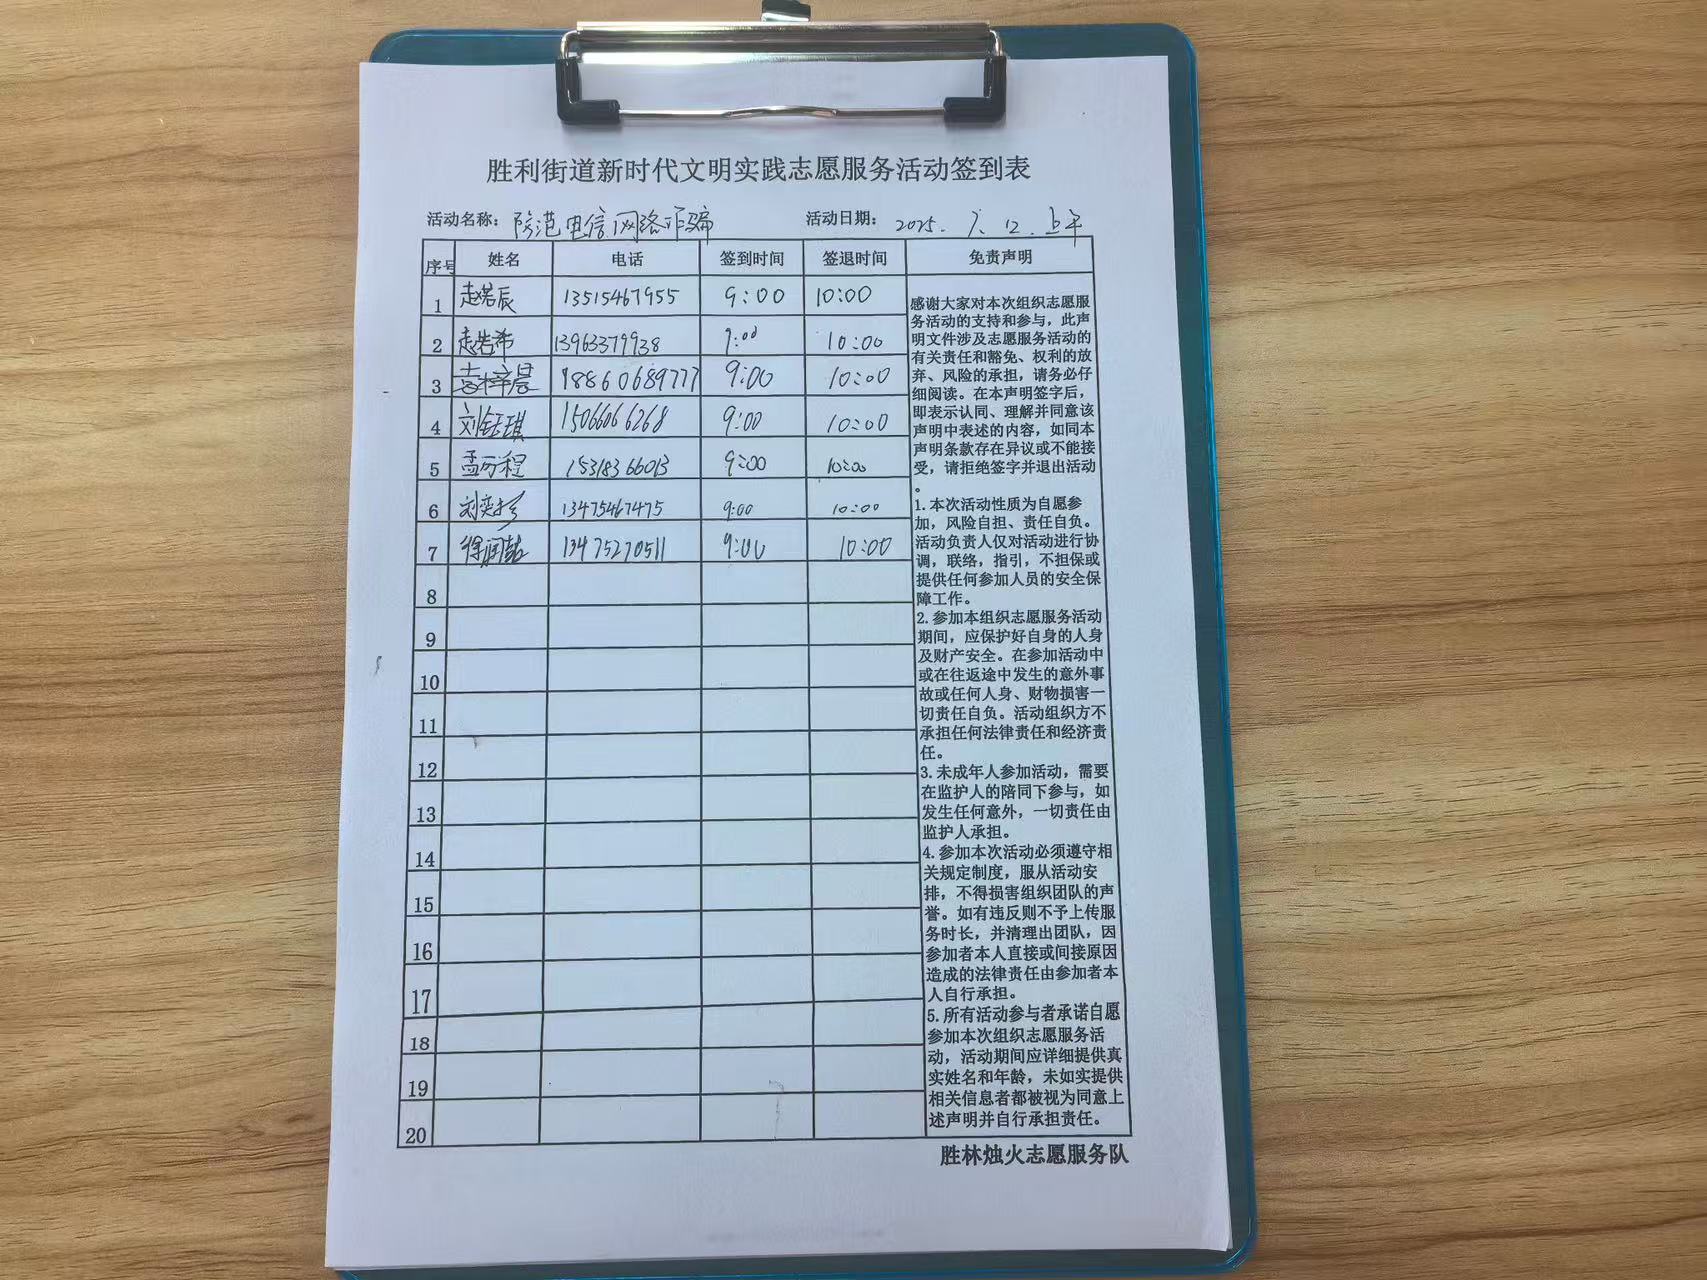 胜利街道新时代文明实践志愿服务活动签到表
活动名称：防范电信网络诈骗 活动日期：2025. 7. 12. 上午
序号 姓名 电话 签到时间 签退时间 免责声明
1 赵若辰 13515467955 9:00 10:00
2 赵若希 13963379938 9:00 10:00
3 袁梓晨 18860689777 9:00 10:00
4 刘钰琪 15066066268 9:00 10:00
5 孟历程 15318366013 9:00 10:00
6 刘奕杉 13475467475 9:00 10:00
7 徐润喆 13475270511 9:00 10:00
8
9
10
11
12
13
14
15
16
17
18
19
20
感谢大家对本次组织志愿服
务活动的支持和参与，此声
明文件涉及志愿服务活动的
有关责任和豁免、权利的放
弃、风险的承担，请务必仔
细阅读。在本声明签字后，
即表示认同、理解并同意该
声明中表述的内容，如同本
声明条款存在异议或不能接
受，请拒绝签字并退出活动
。
1. 本次活动性质为自愿参
加，风险自担、责任自负。
活动负责人仅对活动进行协
调，联络，指引，不担保或
提供任何参加人员的安全保
障工作。
2. 参加本组织志愿服务活动
期间，应保护好自身的人身
及财产安全。在参加活动中
或在往返途中发生的意外事
故或任何人身、财物损害一
切责任自负。活动组织方不
承担任何法律责任和经济责
任。
3. 未成年人参加活动，需要
在监护人的陪同下参与，如
发生任何意外，一切责任由
监护人承担。
4. 参加本次活动必须遵守相
关规定制度，服从活动安
排，不得损害组织团队的声
誉。如有违反则不予上传服
务时长，并清理出团队，因
参加者本人直接或间接原因
造成的法律责任由参加者本
人自行承担。
5. 所有活动参与者承诺自愿
参加本次组织志愿服务活
动，活动期间应详细提供真
实姓名和年龄，未如实提供
相关信息者都被视为同意上
述声明并自行承担责任。
胜林烛火志愿服务队